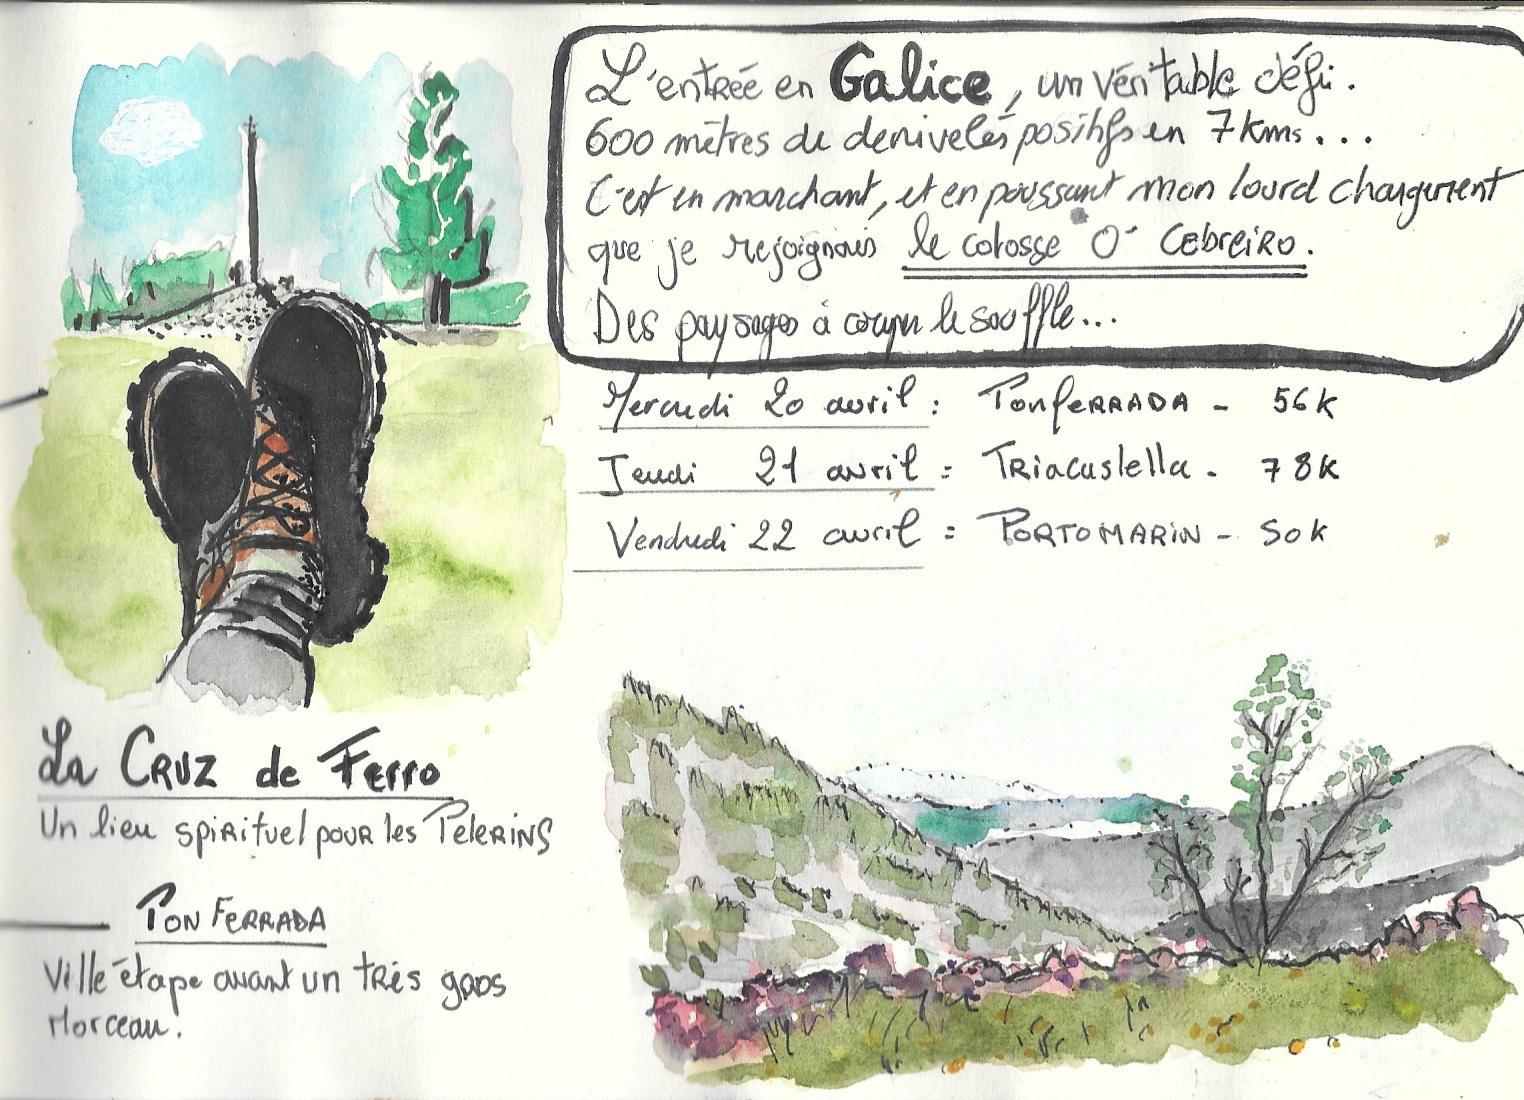 L'entrée en Galice, un véritable défi.
600 mètres de denivelés positifs en 7 kms...
C'est en marchant, et en poussant mon lourd chargement
que je rejoignais le colosse O' CebreiRo.
Des paysages à couper le souffle...
Mercredi 20 avril : PonfeRRADA - 56K
Jeudi 21 avril = TRiacastella - 78K
Vendredi 22 avril = PORTOMARiN - 50K
La CRUZ de Ferro
Un lieu spirituel pour les PeleRiNS
PonFeRRADA
Ville étape avant un très gros
Morceau.